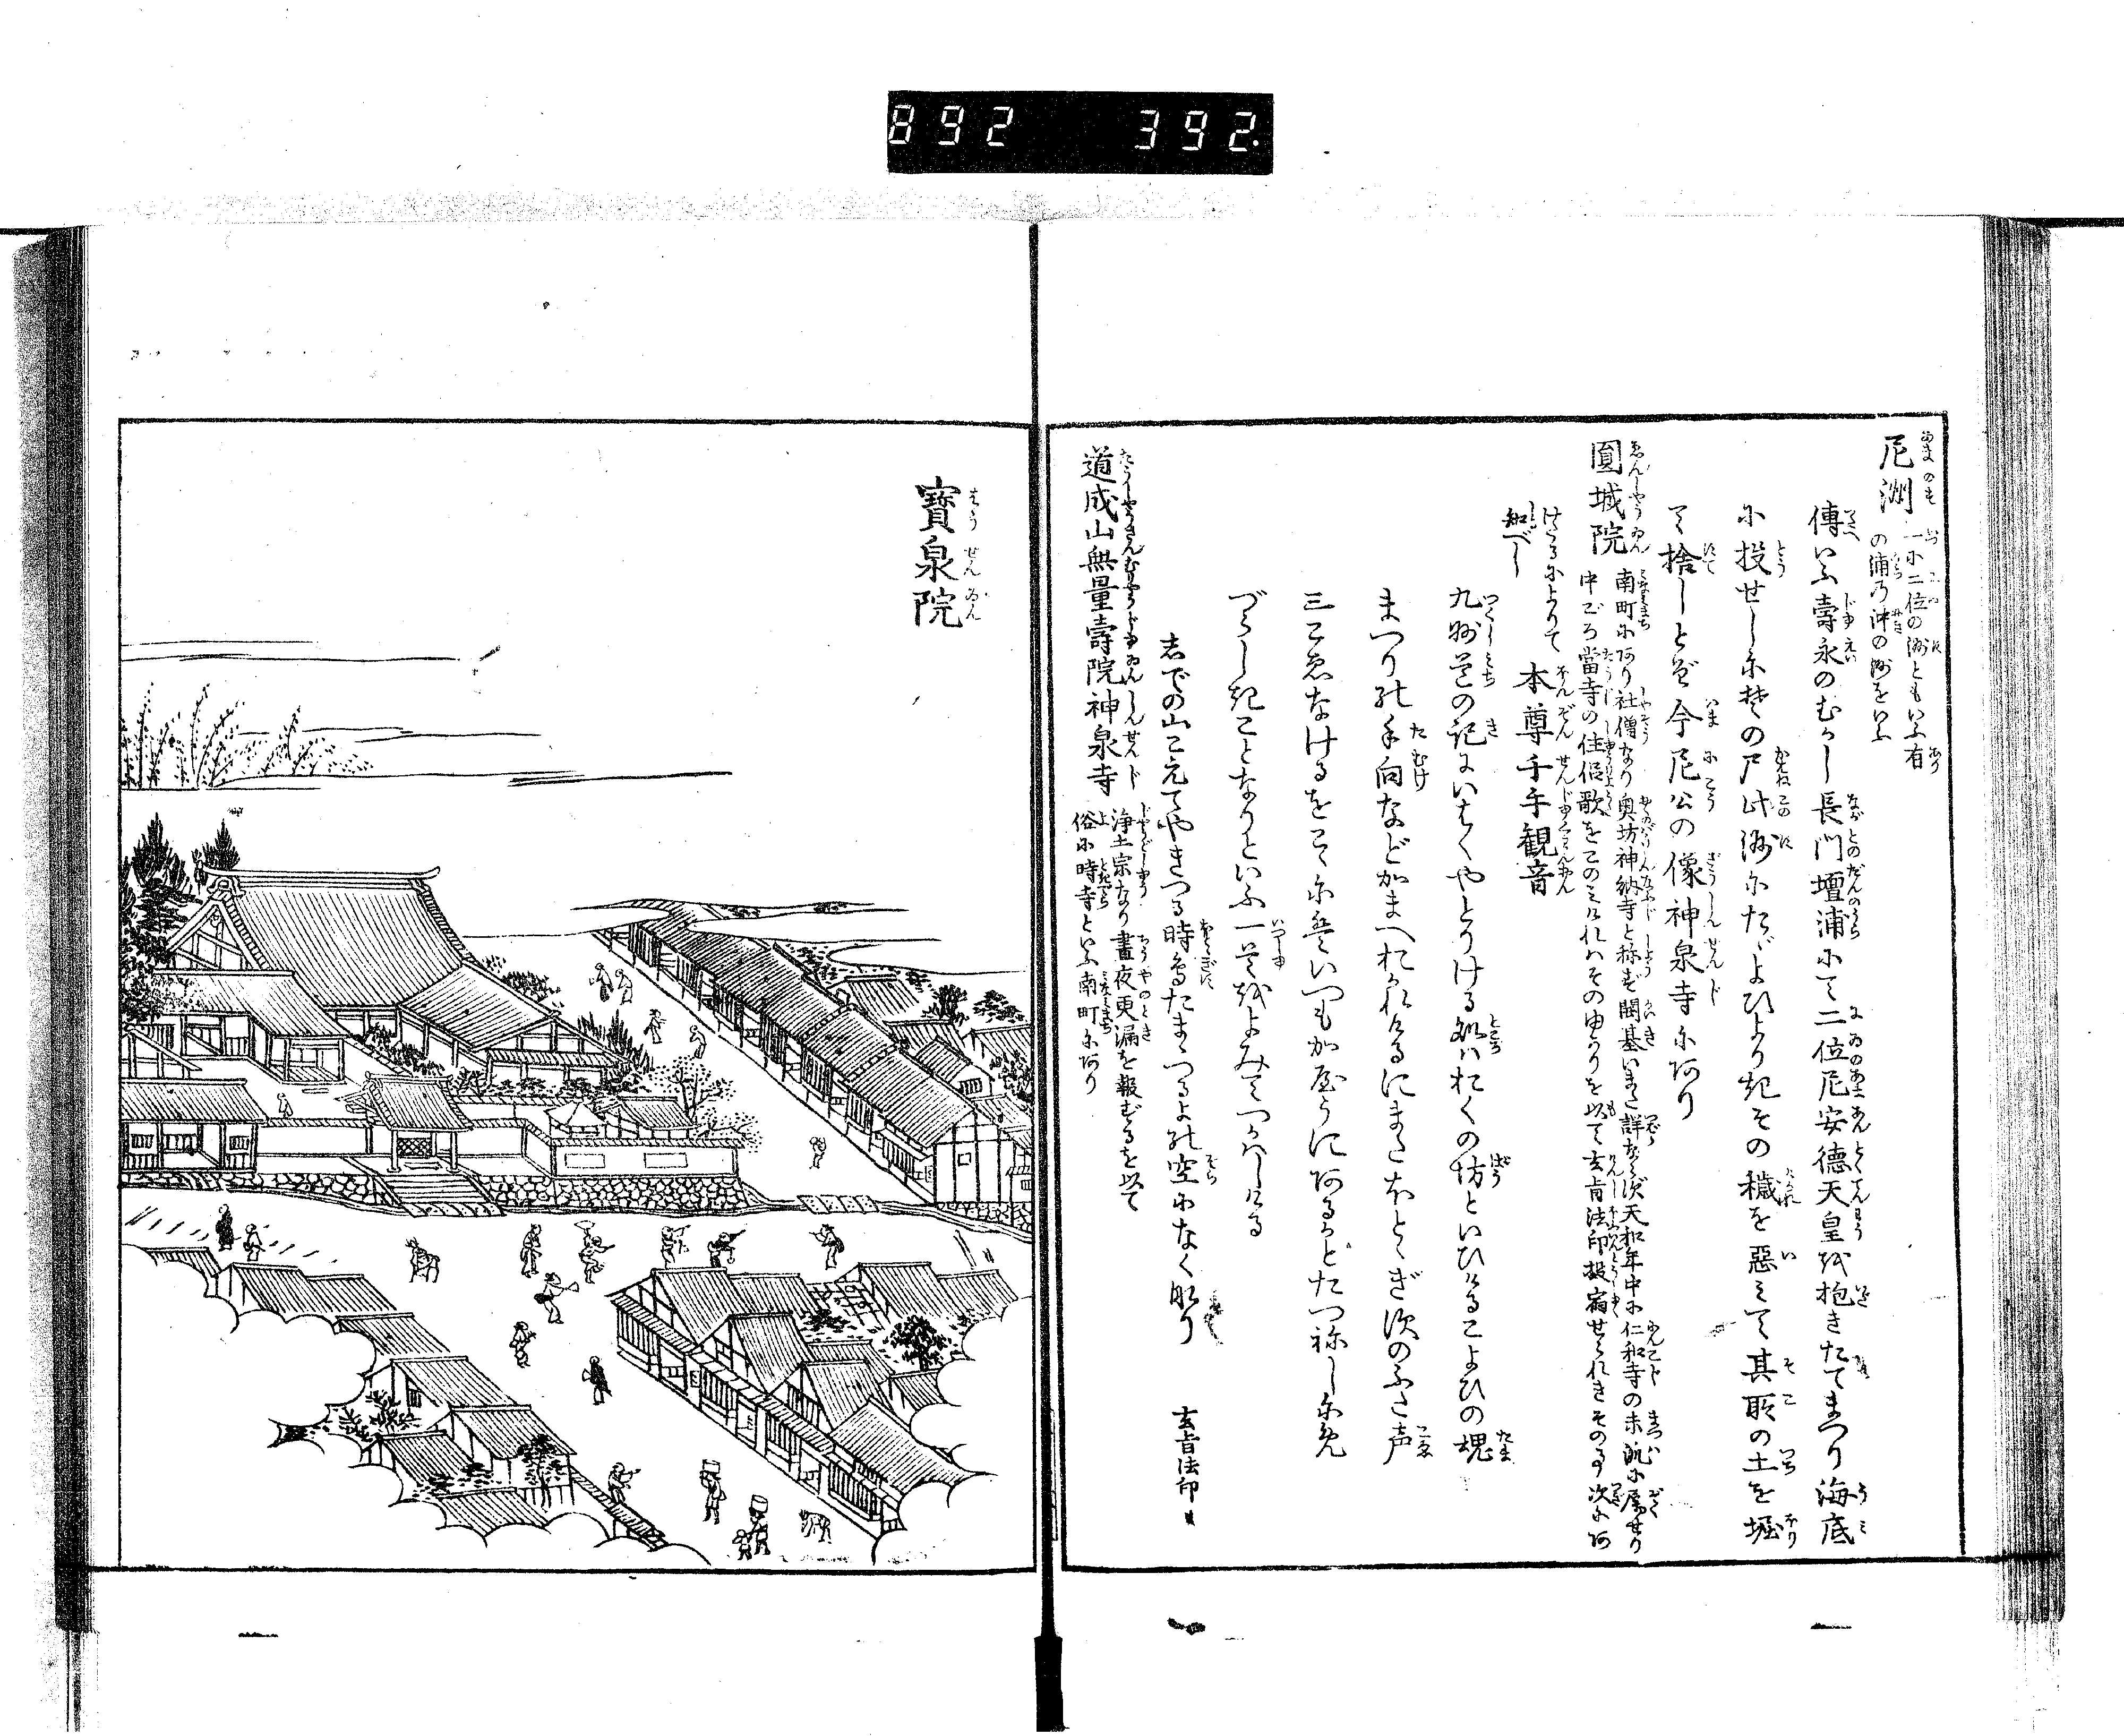 892 392.
尼洲 一に二位の洲ともいふ有
の浦乃沖の洲をいふ
傳いふ壽永のむかし長門壇浦にて二位尼安德天皇を抱きたてまつり海底
に投せしに其の尸此洲にたゞよひより在その穢を惡みて其所の土を堀
て捨しとぞ今尼公の像神泉寺にあり
圓城院 南町にあり社僧なり奥坊神納寺と称す開基いまだ詳ならず天和年中に仁和寺の末派に屬せり
中ごろ當寺の住侶歌をこのみければそのゆかりを以て玄旨法印投宿せられきその事次にあ
けたるによりて
知べし
本尊千手観音
九州道の記にいはくやとりける処はおくの坊といひけるこよひの槐
まつりの手向などかまへおかれけるにまたほとゝぎ須のふた声
三こゑなけるをこゝにはいつもかやうにあるかどたつねしにめ
づらし起ことなりといふ一首をよみてつかはしける
志での山こえてやきつる時鳥たまゝつるよの空になくなり
玄旨法印
道成山無量壽院神泉寺 浄土宗なり晝夜更漏を報ずるを以て
俗に時寺といふ南町にあり
寶泉院
はうせんゐん